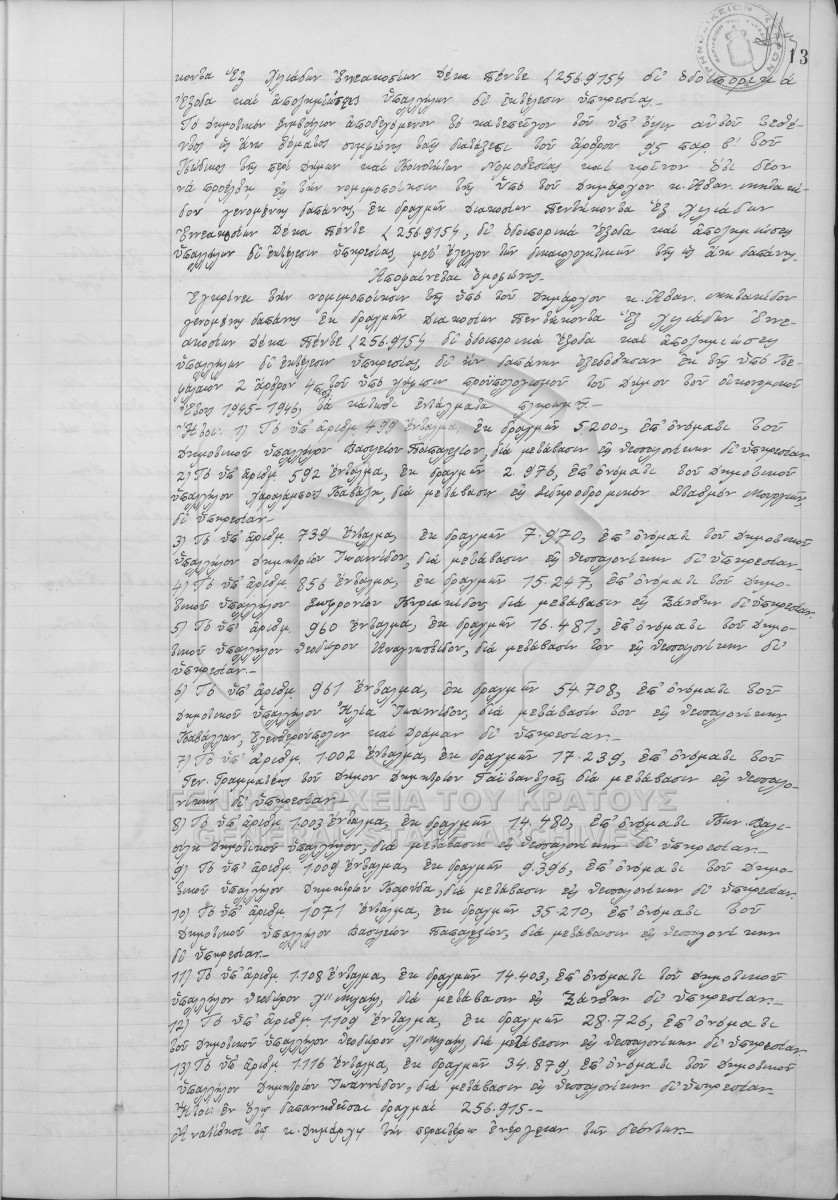 13
κοντα ἕξ χιλιάδων ἐννεακοσίων δέκα πέντε (256.915) δι' ὁδοιπορικὰ
ἔξοδα καὶ ἀποζημιώσεις ὑπαλλήλων δι' ἐκτέλεσιν ὑπηρεσίας.-
Τὸ Δημοτικὸν Συμβούλιον ἀποδεχόμενον τὸ κατεπεῖγον τοῦ ὑπ' ὄψιν αὐτοῦ τεθέν-
τος ὡς ἄνω θέματος συμφώνως ταῖς διατάξεσι τοῦ ἄρθρου 95 παρ. 6' τοῦ
Κώδικος τῆς περὶ Δήμων καὶ Κοινοτήτων Νομοθεσίας καὶ κρῖνον ὅτι δέον
νὰ προέλθῃ εἰς τὴν νομιμοποίησιν τῆς ὑπὸ τοῦ Δημάρχου κ. Ἀθαν.
γενομένης δαπάνης ἐκ δραχμῶν Διακοσίων Πεντήκοντα ἕξ χιλιάδων
ἐννεακοσίων δέκα πέντε (256.915), δι' ὁδοιπορικὰ ἔξοδα καὶ ἀποζημιώσεις
ὑπαλλήλων δι' ἐκτέλεσιν ὑπηρεσίας, μετ' ἔλεγχον τῶν δικαιολογητικῶν τῆς ὡς ἄνω δαπάνης.
Ἀποφαίνεται ὁμοφώνως.-
Ἐγκρίνει τὴν νομιμοποίησιν τῆς ὑπὸ τοῦ Δημάρχου κ. Ἀθαν.
γενομένης δαπάνης ἐκ δραχμῶν Διακοσίων Πεντήκοντα ἕξ χιλιάδων ἐννε-
ακοσίων δέκα πέντε (256.915) δι' ὁδοιπορικὰ ἔξοδα καὶ ἀποζημιώσεις
ὑπαλλήλων δι' ἐκτέλεσιν ὑπηρεσίας, δι' ἣν δαπάνην ἐξεδόθησαν ἐκ τῆς ὑπὸ Κε-
φάλαιον 2 ἄρθρον 4 τοῦ ὑπὸ χρῆσιν προϋπολογισμοῦ τοῦ Δήμου τοῦ οἰκονομικοῦ
ἔτους 1945-1946, τὰ κάτωθι ἐντάλματα πληρωμῆς.-
Ἤτοι: 1) Τὸ ὑπ' ἀριθμ. 499 ἔνταλμα, ἐκ δραχμῶν 5.200, ἐπ' ὀνόματι τοῦ
Δημοτικοῦ ὑπαλλήλου Βασιλείου, διὰ μετάβασιν εἰς Θεσσαλονίκην δι' ὑπηρεσίαν.
2) Τὸ ὑπ' ἀριθμ. 592 ἔνταλμα, ἐκ δραχμῶν 2.976, ἐπ' ὀνόματι τοῦ Δημοτικοῦ
ὑπαλλήλου Χαραλάμπους, διὰ μετάβασιν εἰς Σιδηροδρομικὸν Σταθμὸν
δι' ὑπηρεσίαν.-
3) Τὸ ὑπ' ἀριθμ. 739 ἔνταλμα, ἐκ δραχμῶν 7.970, ἐπ' ὀνόματι τοῦ Δημοτικοῦ
ὑπαλλήλου Δημητρίου Ἰωαννίδου, διὰ μετάβασιν εἰς Θεσσαλονίκην δι' ὑπηρεσίαν.-
4) Τὸ ὑπ' ἀριθμ. 856 ἔνταλμα, ἐκ δραχμῶν 15.247, ἐπ' ὀνόματι τοῦ Δημο-
τικοῦ ὑπαλλήλου Σωφρονίου Κυριακίδου, διὰ μετάβασιν εἰς Ξάνθην δι' ὑπηρεσίαν.
5) Τὸ ὑπ' ἀριθμ. 960 ἔνταλμα, ἐκ δραχμῶν 16.481, ἐπ' ὀνόματι τοῦ Δημο-
τικοῦ ὑπαλλήλου Θεοδώρου, διὰ μετάβασίν του εἰς Θεσσαλονίκην δι'
ὑπηρεσίαν.-
6) Τὸ ὑπ' ἀριθμ. 961 ἔνταλμα, ἐκ δραχμῶν 54.708, ἐπ' ὀνόματι τοῦ
Δημοτικοῦ ὑπαλλήλου Ἠλία Ἰωαννίδου, διὰ μετάβασίν του εἰς Θεσσαλονίκην,
Καβάλλαν, Ἐλευθερούπολιν καὶ Δράμαν δι' ὑπηρεσίαν.-
7) Τὸ ὑπ' ἀριθμ. 1.002 ἔνταλμα, ἐκ δραχμῶν 17.239, ἐπ' ὀνόματι τοῦ
Γεν. Γραμματέως τοῦ Δήμου Δημητρίου, διὰ μετάβασιν εἰς Θεσσαλο-
νίκην δι' ὑπηρεσίαν.-
ΓΕΝΙΚΑ ΑΡΧΕΙΑ ΤΟΥ ΚΡΑΤΟΥΣ
GENERAL STATE ARCHIVES
8) Τὸ ὑπ' ἀριθμ. 1.003 ἔνταλμα, ἐκ δραχμῶν 14.480, ἐπ' ὀνόματι
Δημοτικοῦ ὑπαλλήλου, διὰ μετάβασιν εἰς Θεσσαλονίκην δι' ὑπηρεσίαν.-
9) Τὸ ὑπ' ἀριθμ. 1009 ἔνταλμα, ἐκ δραχμῶν 9.396, ἐπ' ὀνόματι τοῦ Δημο-
τικοῦ ὑπαλλήλου Δημητρίου, διὰ μετάβασιν εἰς Θεσσαλονίκην δι' ὑπηρεσίαν.
10) Τὸ ὑπ' ἀριθμ. 1071 ἔνταλμα, ἐκ δραχμῶν 35.210, ἐπ' ὀνόματι τοῦ
Δημοτικοῦ ὑπαλλήλου Βασιλείου, διὰ μετάβασιν εἰς Θεσσαλονίκην
δι' ὑπηρεσίαν.-
11) Τὸ ὑπ' ἀριθμ. 1.108 ἔνταλμα, ἐκ δραχμῶν 14.403, ἐπ' ὀνόματι τοῦ Δημοτικοῦ
ὑπαλλήλου Θεοδώρου, διὰ μετάβασιν εἰς Ξάνθην δι' ὑπηρεσίαν.-
12) Τὸ ὑπ' ἀριθμ. 1.109 ἔνταλμα, ἐκ δραχμῶν 28.726, ἐπ' ὀνόματι
τοῦ Δημοτικοῦ ὑπαλλήλου Θεοδώρου, διὰ μετάβασιν εἰς Θεσσαλονίκην δι' ὑπηρεσίαν.
13) Τὸ ὑπ' ἀριθμ. 1.116 ἔνταλμα, ἐκ δραχμῶν 34.879, ἐπ' ὀνόματι τοῦ Δημοτικοῦ
ὑπαλλήλου Δημητρίου Ἰωαννίδου, διὰ μετάβασιν εἰς Θεσσαλονίκην δι' ὑπηρεσίαν.
Ἤτοι: ἐν ὅλῳ δαπανηθεῖσαι δραχμαὶ 256.915.-
Ἀνατίθησι τῷ κ. Δημάρχῳ τὴν περαιτέρω ἐνέργειαν τῶν δεόντων.-